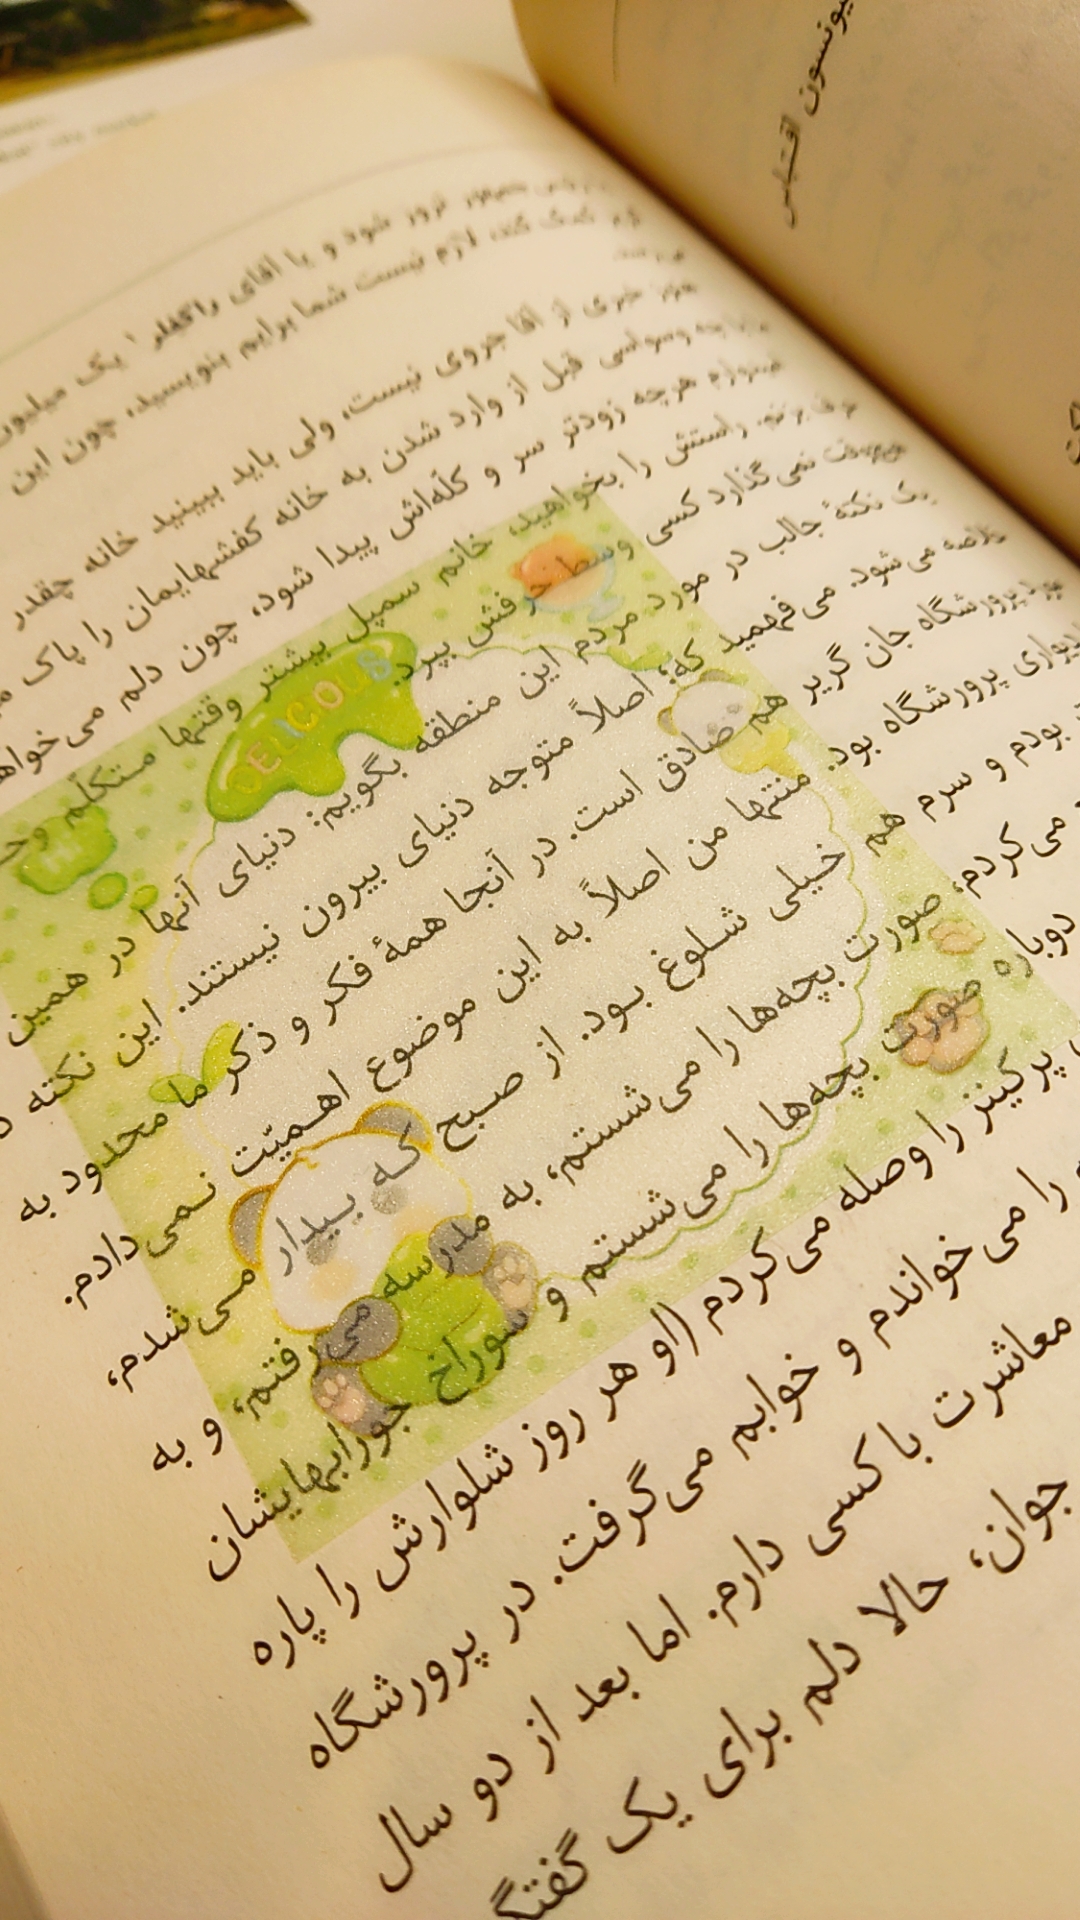 یونسون اقتباس
جمهور ترور شود و یا آقای راکفلر۱ یک میلیون
کمک کند، لازم نیست شما برایم بنویسید، چون این
هنوز خبری از آقا جروی نیست، ولی باید ببینید خانه چقدر
با چه وسواسی قبل از وارد شدن به خانه کفشهایمان را پاک
امیدوارم هرچه زودتر سر و کله‌اش پیدا شود، چون دلم می‌خواهد
حرف بزنم. راستش را بخواهید، خانم سمپل بیشتر وقتها متکلّم
هیچوقت نمی‌گذارد کسی وسط حرفش بپرد.
یک نکتهٔ جالب در مورد مردم این منطقه بگویم: دنیای آنها در همین
خلاصه می‌شود. می‌فهمید که؛ اصلاً متوجه دنیای بیرون نیستند. این نکته
پرورشگاه جان گریر هم صادق است. در آنجا همهٔ فکر و ذکر ما محدود به
دیواری پرورشگاه بود. منتها من اصلاً به این موضوع اهمیّت نمی‌دادم.
بودم و سرم هم خیلی شلوغ بود. از صبح که بیدار می‌شدم،
می‌کردم، صورت بچه‌ها را می‌شستم، به مدرسه می‌رفتم، و به
دوباره صورت بچه‌ها را می‌شستم و سوراخ جورابهایشان
پرکینز را وصله می‌کردم (او هر روز شلوارش را پاره
را می‌خواندم و خوابم می‌گرفت. در پرورشگاه
معاشرت با کسی دارم. اما بعد از دو سال
جوان، حالا دلم برای یک
DELICOUS